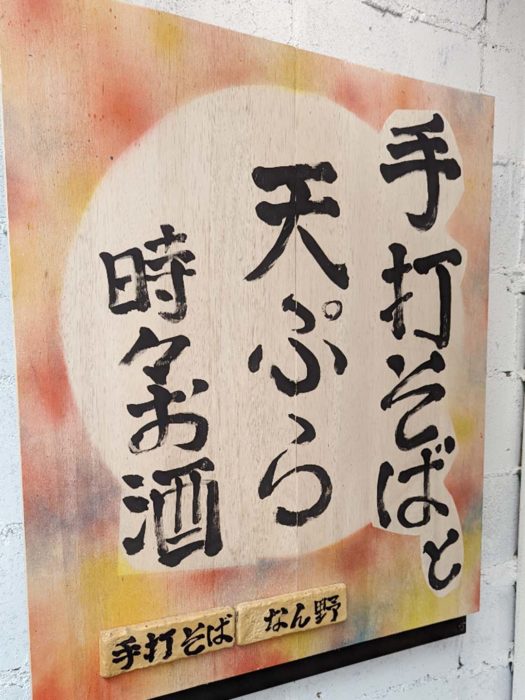 手打そばと
天ぷら
時々お酒
手打そば
なん野